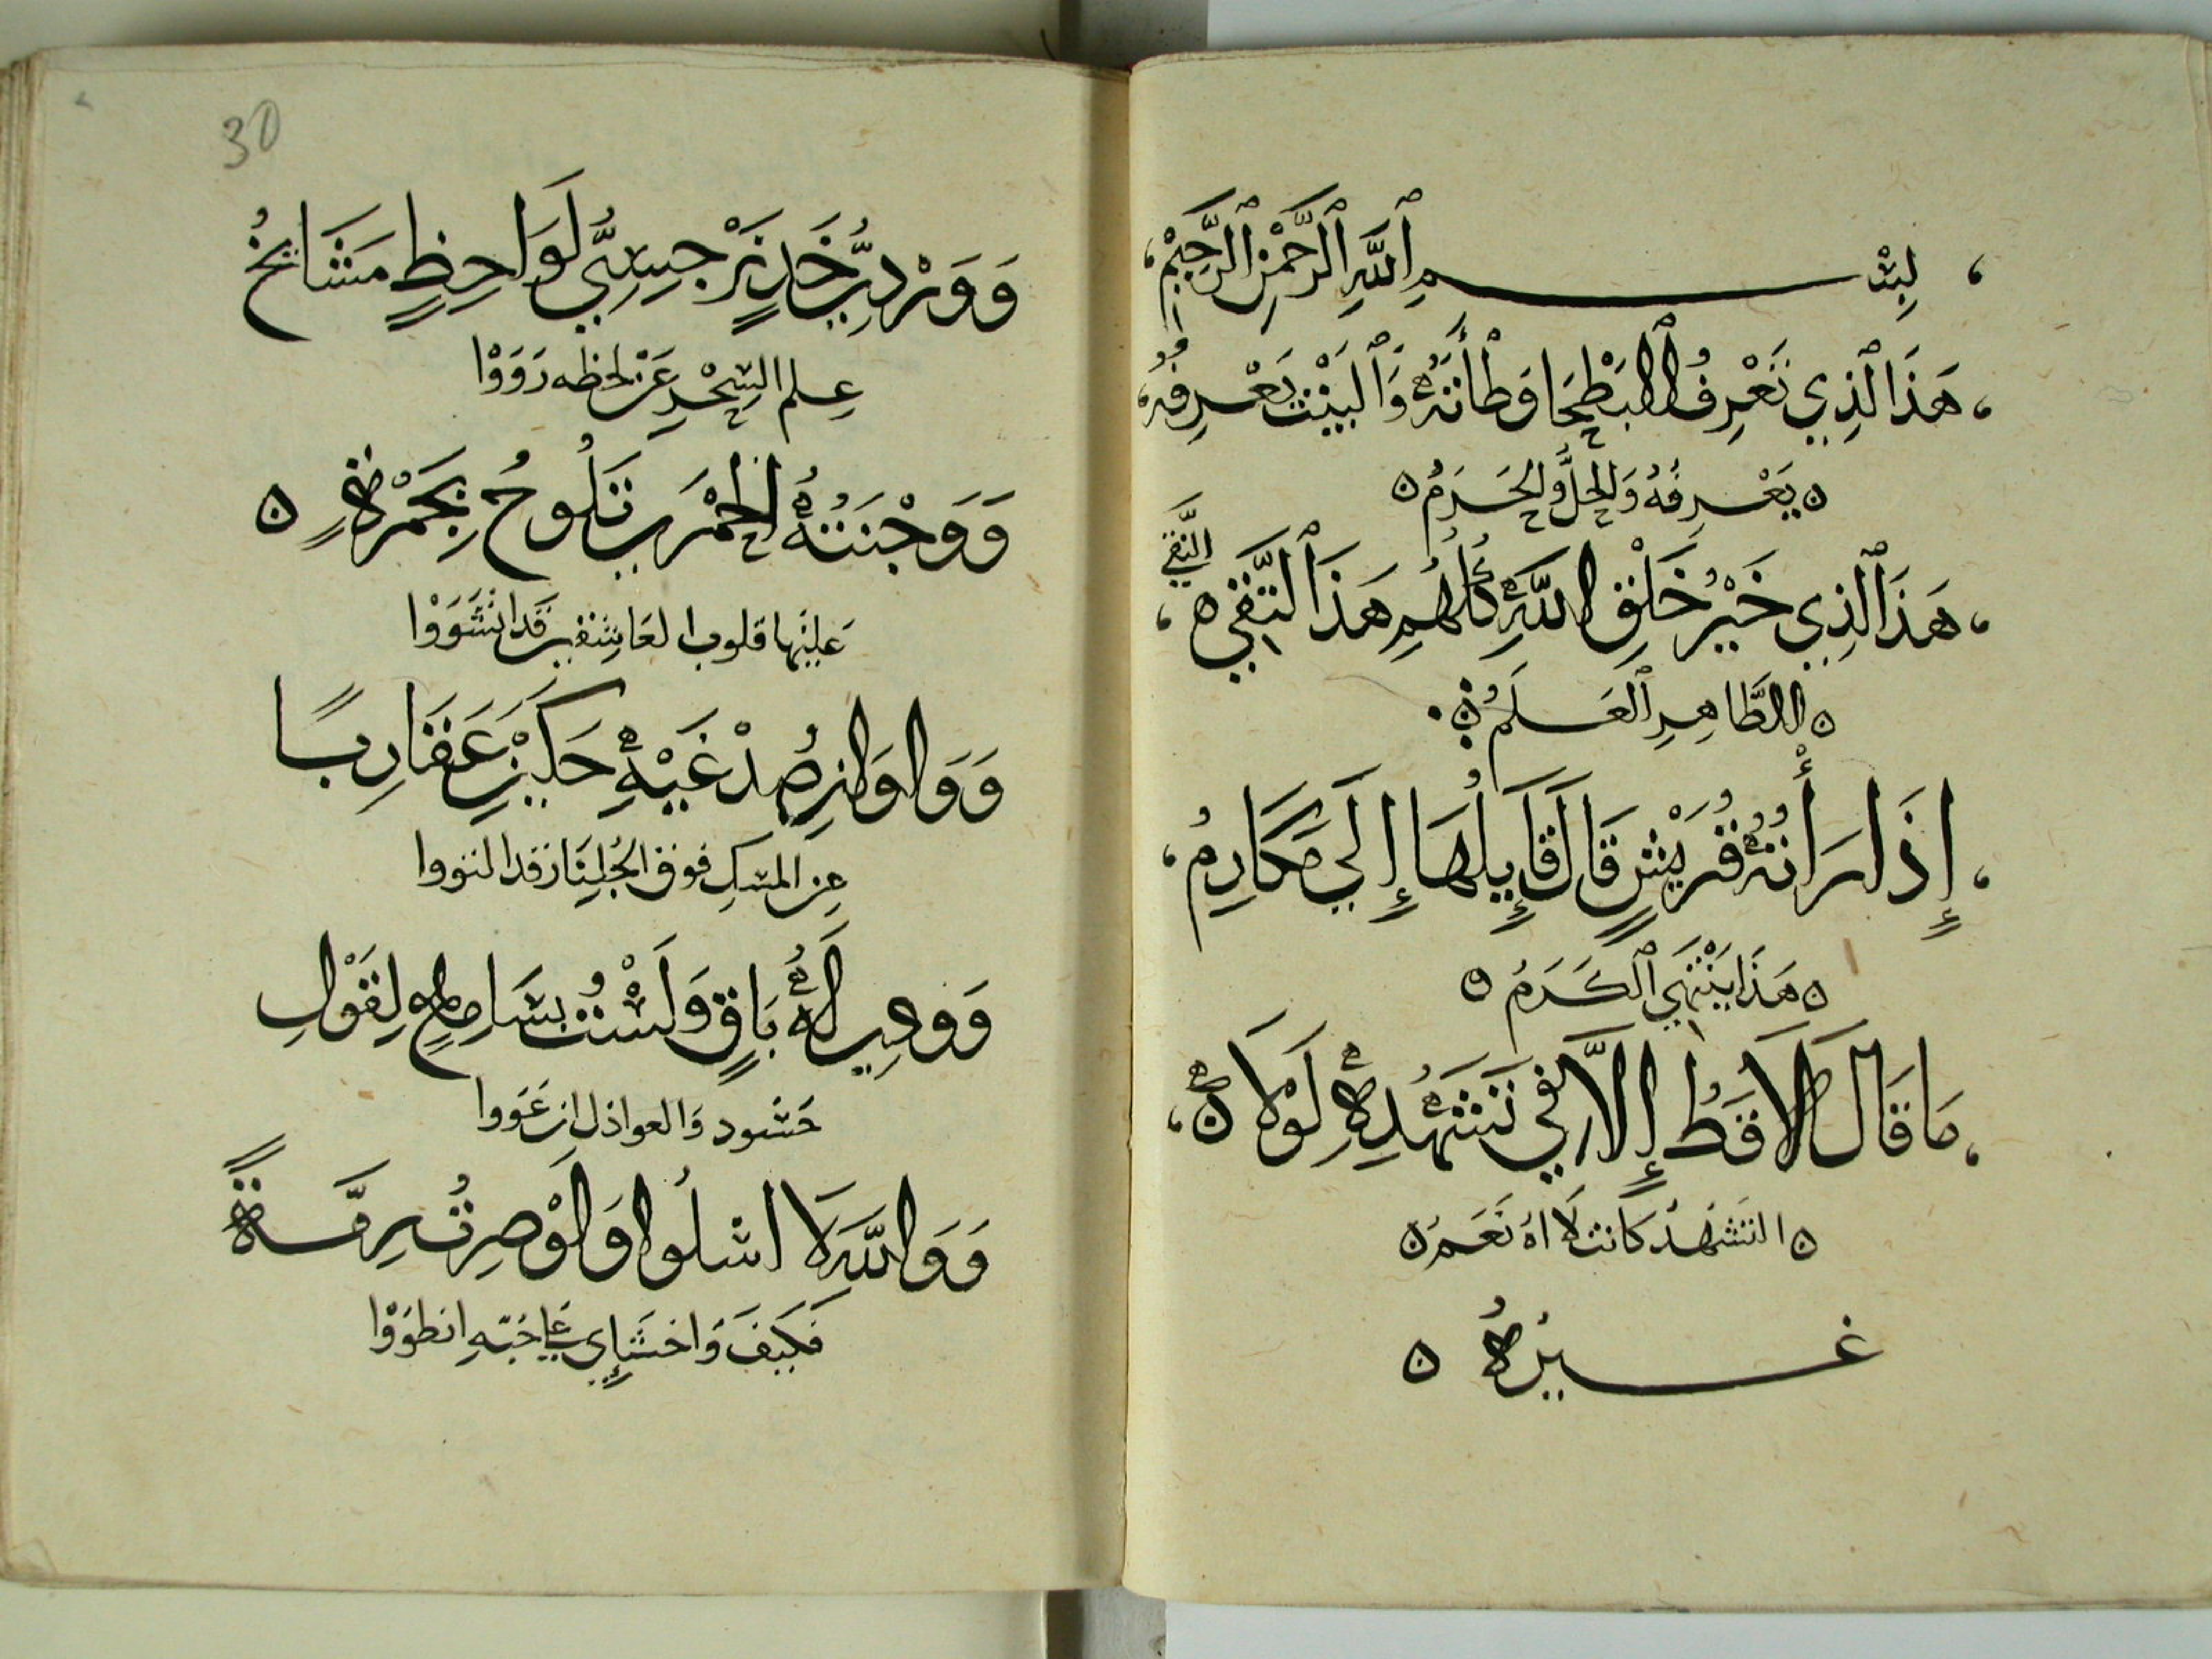 بِسْـــــمِ ٱللَّهِ ٱلرَّحْمَٰنِ ٱلرَّحِيمْ
هَذَا ٱلَّذِي تَعْرِفُ ٱلْبَطْحَا وَطْأَتَهُ وَٱلْبَيْتُ يَعْرِفُهُ
يَعْرِفُهُ وَالحِلُّ وَالحَرَمُ
هَذَا ٱلَّذِي خَيْرُ خَلْقِ اللَّهِ كُلِّهُمِ هَذَا ٱلتَّقِي
النَّقِي
الطَّاهِرِ ٱلعَلَمُ
إِذَا رَأَتْهُ قُرَيْشٍ قَالَ قَايِلُهَا إِلَى مَكَارِمُ
هَذَا يَنْتَهِي ٱلْكَرَمُ
مَا قَالَ لَا قَطُ إِلَّا فِي تَشَهُدِهِ لَوْلَا
التَشَهُدُ كانت لَا اهُ نَعَمُ
غَـــيْرُهُ
30
وَوَرْدِيُّ خَدٍ نَرْجِسِيُّ لَوَاحِظٍ مَشَايخُ
عِلمِ السِّحْرِ عَن لحظه رَوَوْا
وَوَجْنَتُهُ الحَمْرَى تَلُوحُ بِجَمْرَةٍ
عَلَيْهَا قلوب العَاشِقِين قَد انْشَوَوْا
وَوَاوَانِ صُدْغَيْهِ حَكَيْنِ عَقَارِبًا
عِن المسكِ فوق الجُلِنَار قد التووا
وَوِدِي لَهُ بَاقٍ وَلَسْتُ بسَامِعٍ لِقَوْلِ
حَسُود وَالعواذل ان عَوَوا
وَوَاللَّهِ لَا اسْلُوا وَلَوْ صِرتُ رِمَّةً
فَكَيْفَ وَاحْشَإِي عَلى حُبّهِ انطَوَوْا